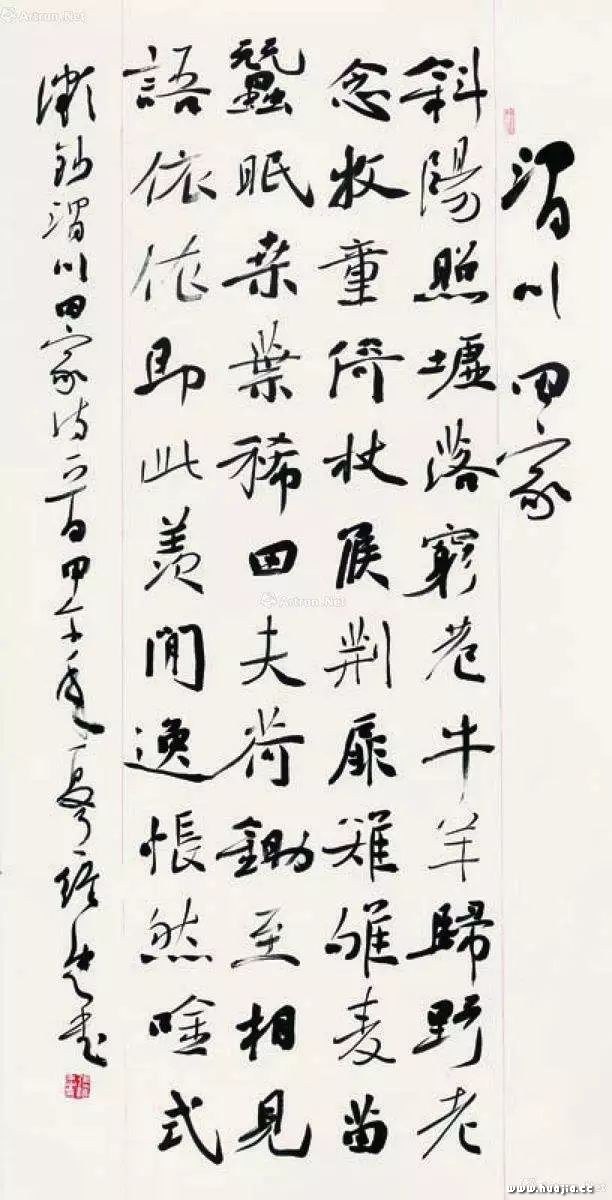 渭川田家
斜陽照墟落窮巷牛羊歸野老
念牧童倚杖候荆扉雉雊麦苗
蠶眠桑葉稀田夫荷鋤至相見
語依依即此羡閒逸悵然唫式
微鈔渭川田家诗一首甲午年夏書
Artron.Net
Artron.Net
Artron.Net
www.huajia.cc